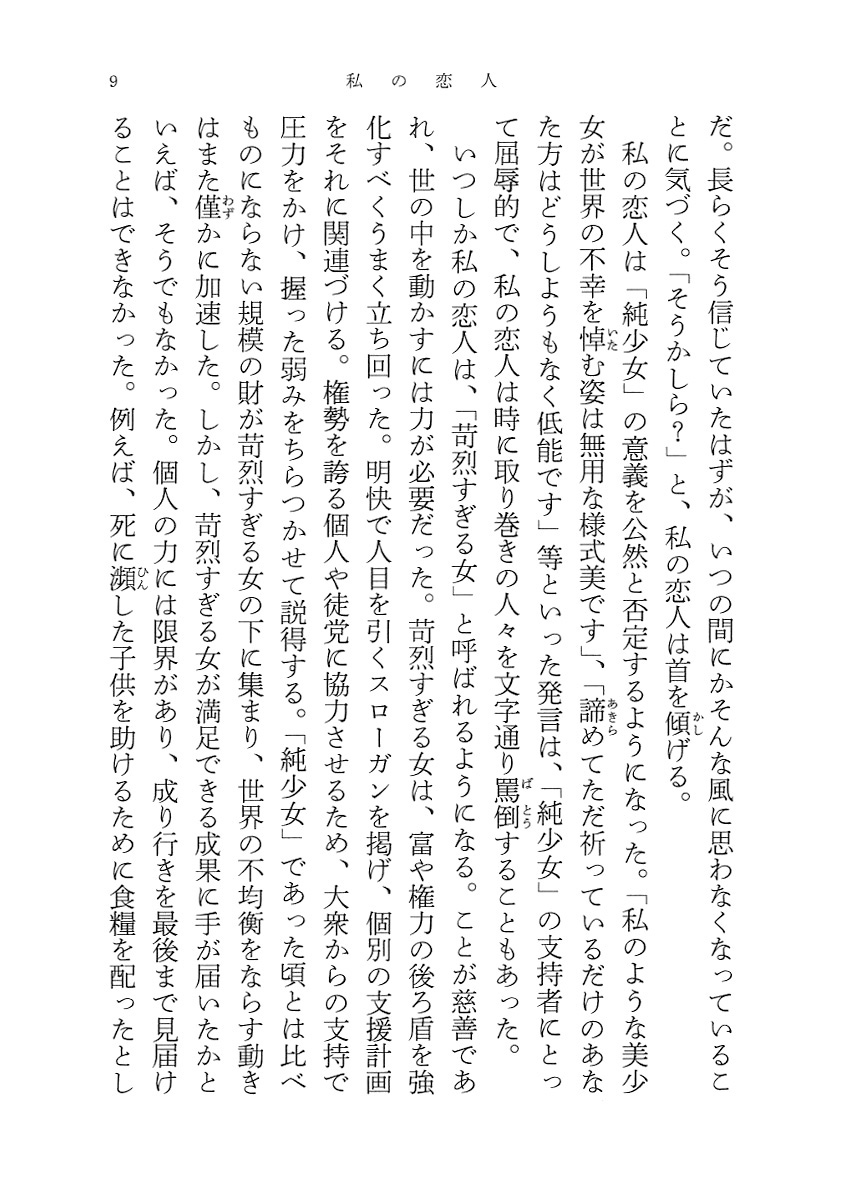 9
私の恋人
だ。長らくそう信じていたはずが、いつの間にかそんな風に思わなくなっているこ
とに気づく。「そうかしら？」と、私の恋人は首を傾げる。
私の恋人は「純少女」の意義を公然と否定するようになった。「私のような美少
女が世界の不幸を悼む姿は無用な様式美です」、「諦めてただ祈っているだけのあな
た方はどうしようもなく低能です」等といった発言は、「純少女」の支持者にとっ
て屈辱的で、私の恋人は時に取り巻きの人々を文字通り罵倒することもあった。
いつしか私の恋人は、「苛烈すぎる女」と呼ばれるようになる。ことが慈善であ
れ、世の中を動かすには力が必要だった。苛烈すぎる女は、富や権力の後ろ盾を強
化すべくうまく立ち回った。明快で人目を引くスローガンを掲げ、個別の支援計画
をそれに関連づける。権勢を誇る個人や徒党に協力させるため、大衆からの支持で
圧力をかけ、握った弱みをちらつかせて説得する。「純少女」であった頃とは比べ
ものにならない規模の財が苛烈すぎる女の下に集まり、世界の不均衡をならす動き
はまた僅かに加速した。しかし、苛烈すぎる女が満足できる成果に手が届いたかと
いえば、そうでもなかった。個人の力には限界があり、成り行きを最後まで見届け
ることはできなかった。例えば、死に瀕した子供を助けるために食糧を配ったとし